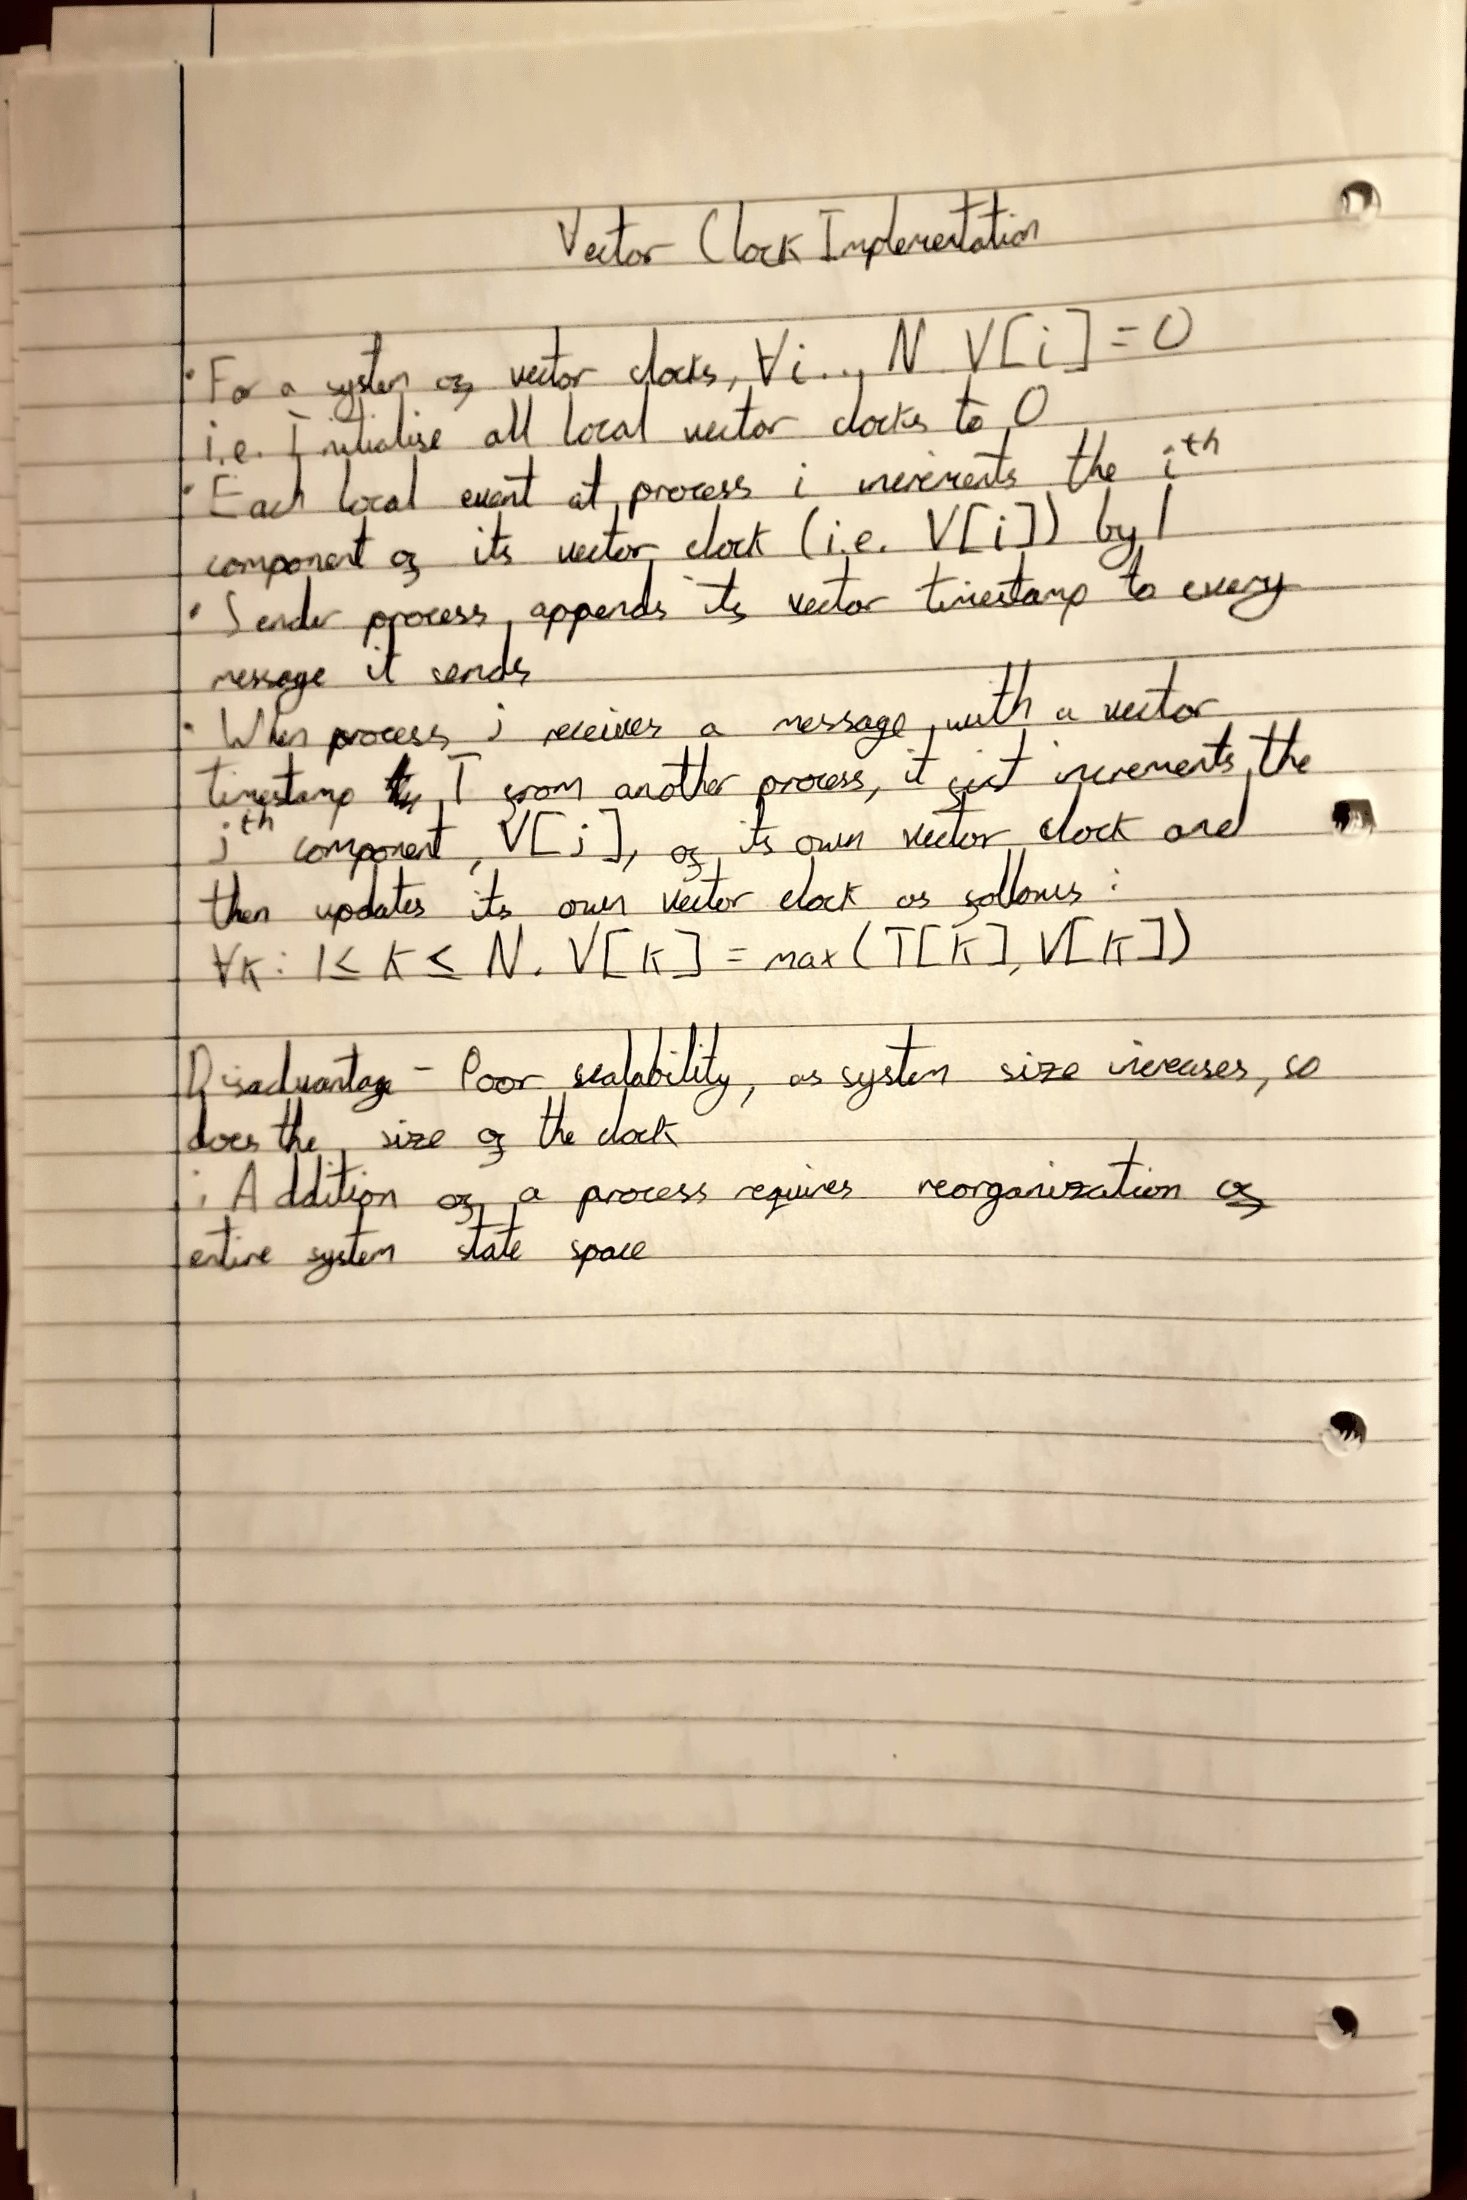 Vector Clock Implementation
· For a system of vector clocks, ∀i... N V[i] = 0
i.e. Initialise all local vector clocks to 0
· Each local event at process i increments the i^th
component of its vector clock (i.e. V[i]) by 1
· Sender process appends its vector timestamp to every
message it sends
· When process j receives a message with a vector
timestamp T from another process, it first increments the
j^th component, V[j], of its own vector clock and
then updates its own vector clock as follows:
∀k: 1 ≤ k ≤ N. V[k] = max(T[k], V[k])
Disadvantage - Poor scalability, as system size increases, so
does the size of the clock
: Addition of a process requires reorganization of
entire system state space